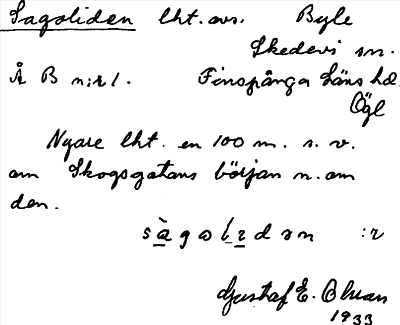 Sagoliden lht. avs. Byle
Skedevi sn.
Å B n:r 1. Finspånga Läns hd.
Ögl
Nyare lht. en 100 m. s. v.
om Skogsgatans början n. om
den.
sàgolìdən :r
Gustaf E. Olsson
1933